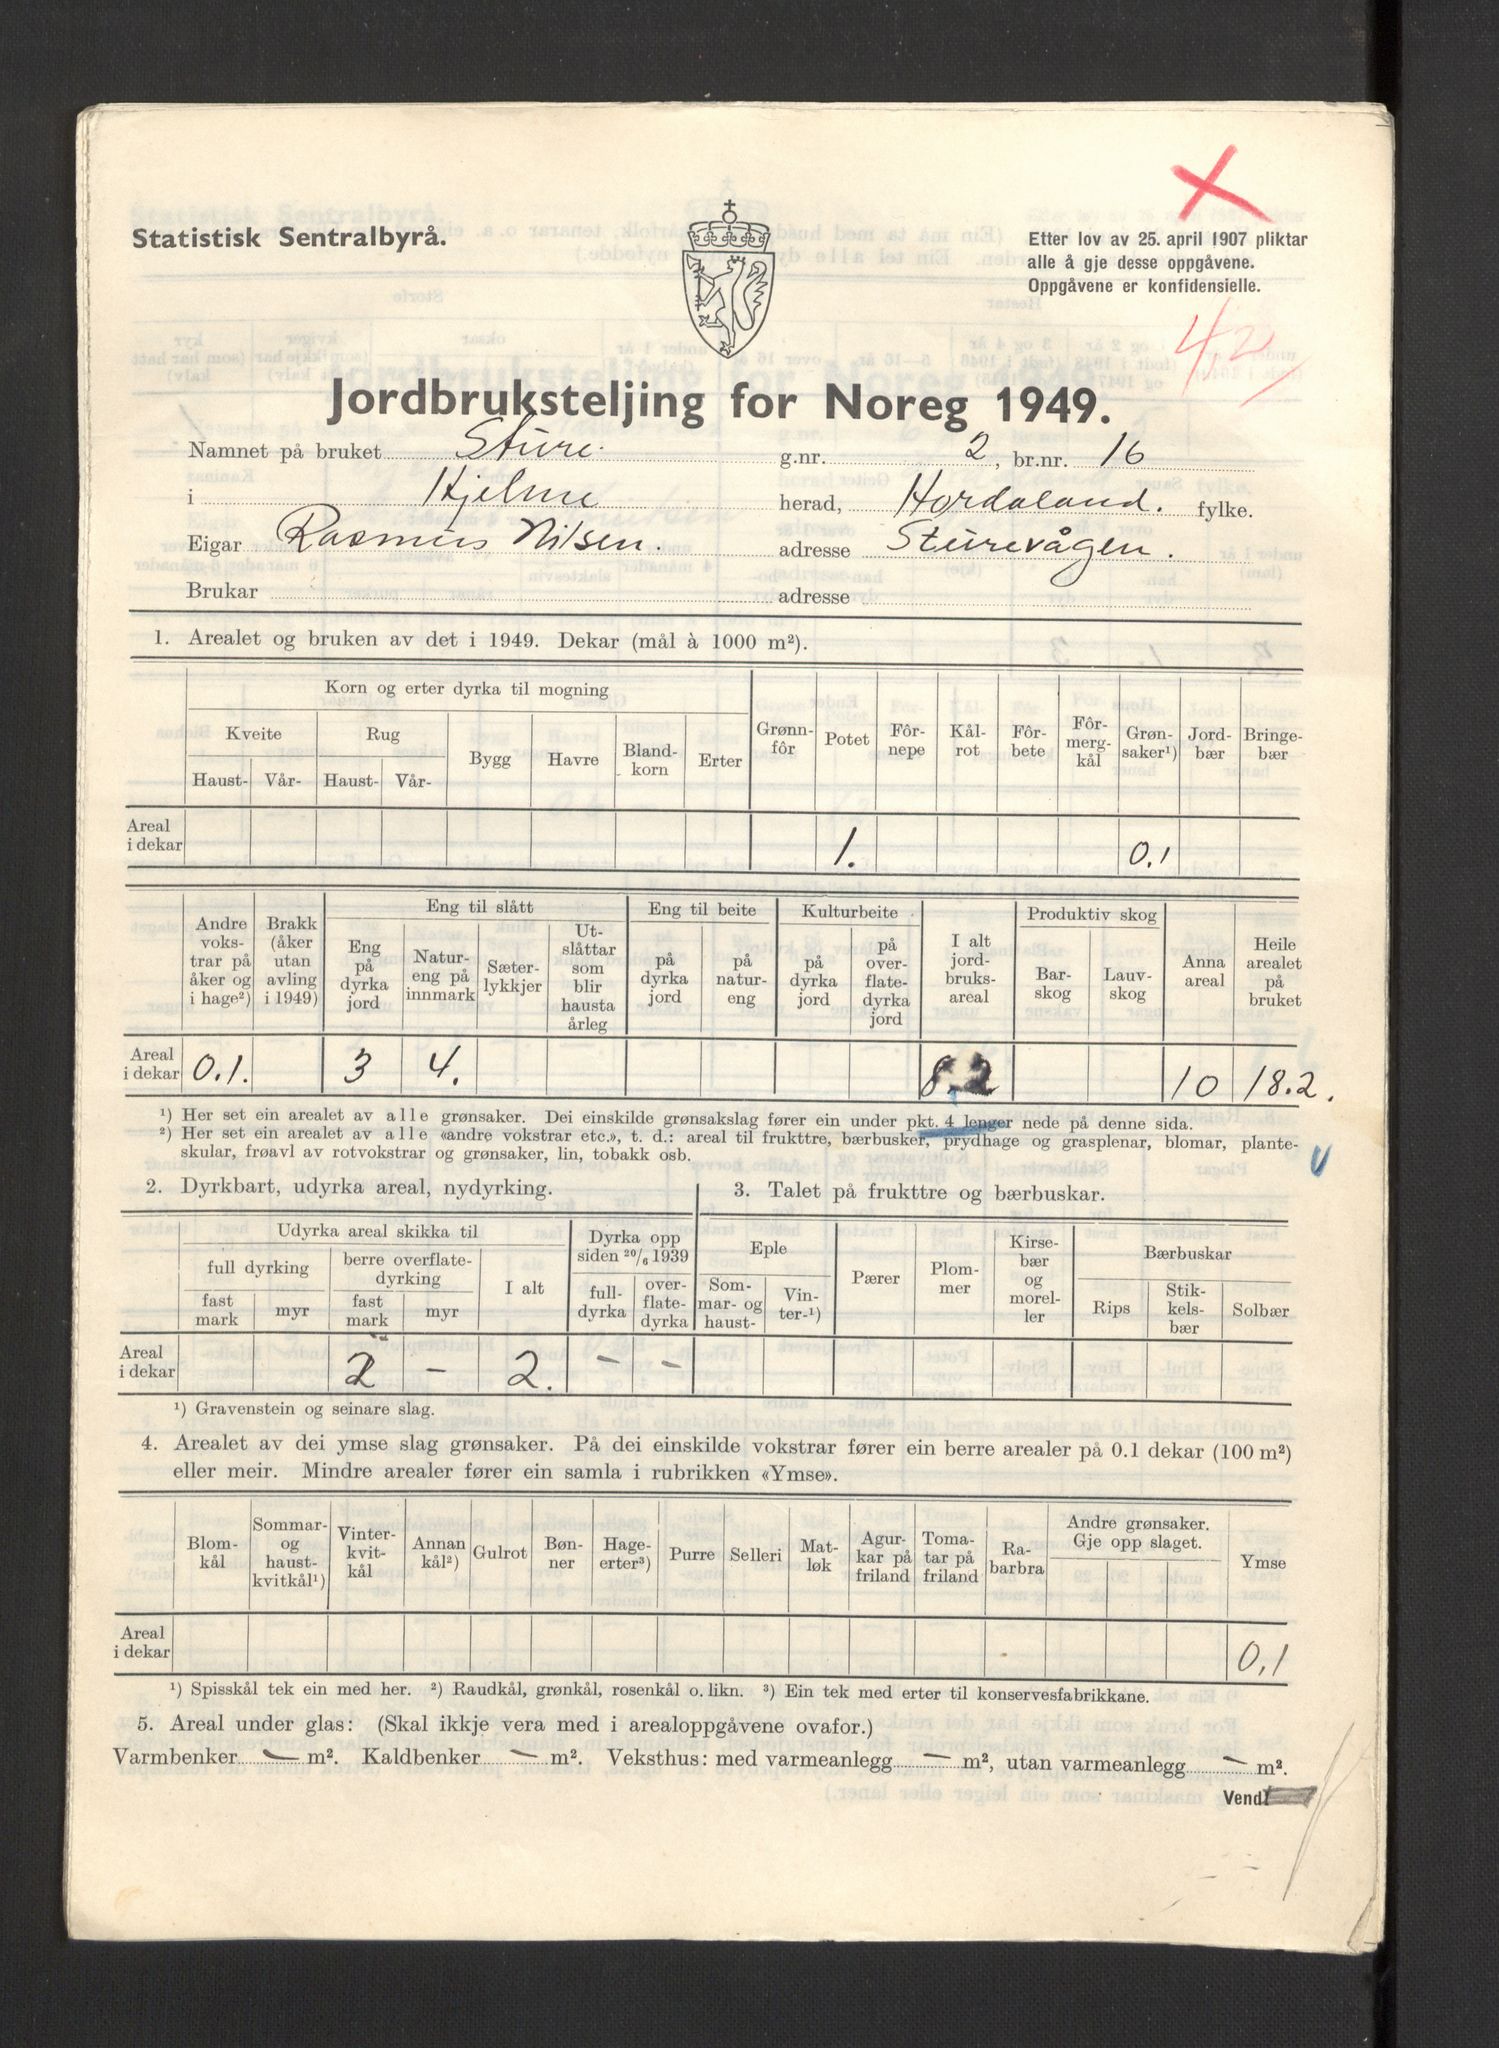 Statistisk Sentralbyrå.
Etter lov av 25. april 1907 pliktar
alle å gje desse oppgåvene.
Oppgåvene er konfidensielle.
42
Jordbruksteljing for Noreg 1949.
Namnet på bruket Sture. g.nr. 2, br.nr. 16
i Hjelme herad, Hordaland. fylke.
Eigar Rasmus Nilsen. adresse Sturevågen.
Brukar adresse
1. Arealet og bruken av det i 1949. Dekar (mål à 1000 m²).
Korn og erter dyrka til mogning
Kveite Rug Bygg Havre Bland-korn Erter Grønn-fôr Potet Fôr-nepe Kål-rot Fôr-bete Fôr-mergkål Grøn-saker¹) Jord-bær Bringe-bær
Haust- Vår- Haust- Vår-
Areal i dekar 1. 0.1
Andre voks-trar på åker og i hage²) Brakk (åker utan avling i 1949) Eng til slått Eng til beite Kulturbeite I alt jord-bruks-areal Produktiv skog Anna areal Heile arealet på bruket
Eng på dyrka jord Natur-eng på innmark Sæter-lykkjer Ut-slåttar som blir hausta årleg på dyrka jord på natur-eng på dyrka jord på over-flate-dyrka jord Bar-skog Lauv-skog
Areal i dekar 0.1. 3 4. 8.2 10 18.2.
¹) Her set ein arealet av alle grønsaker. Dei einskilde grønsakslag fører ein under pkt. 4 lenger nede på denne sida.
²) Her set ein arealet av alle «andre vokstrar etc.», t. d.: areal til frukttre, bærbusker, prydhage og grasplenar, blomar, plante-
skular, frøavl av rotvokstrar og grønsaker, lin, tobakk osb.
2. Dyrkbart, udyrka areal, nydyrking. 3. Talet på frukttre og bærbuskar.
Udyrka areal skikka til Dyrka opp siden 20/6 1939 Eple Pærer Plom-mer Kirse-bær og morel-ler Bærbuskar
full dyrking berre overflate-dyrking I alt full-dyrka over-flate-dyrka Som-mar- og haust- Vin-ter-¹) Rips Stik-kels-bær Solbær
fast mark myr fast mark myr
Areal i dekar 2 – 2. – –
¹) Gravenstein og seinare slag.
4. Arealet av dei ymse slag grønsaker. På dei einskilde vokstrar fører ein berre arealer på 0.1 dekar (100 m²)
eller meir. Mindre arealer fører ein samla i rubrikken «Ymse».
Blom-kål Sommar- og haust-kvitkål¹) Vinter-kvit-kål Annan kål²) Gulrot Bøn-ner Hage-erter³) Purre Selleri Mat-løk Agur-kar på friland Toma-tar på friland Ra-barbra Andre grønsaker. Gje opp slaget. Ymse
Areal i dekar 0,1
¹) Spisskål tek ein med her. ²) Raudkål, grønkål, rosenkål o. likn. ³) Ein tek med erter til konservesfabrikkane.
5. Areal under glas: (Skal ikkje vera med i arealoppgåvene ovafor.)
Varmbenker – m². Kaldbenker – m². Veksthus: med varmeanlegg – m², utan varmeanlegg – m².
Vend!